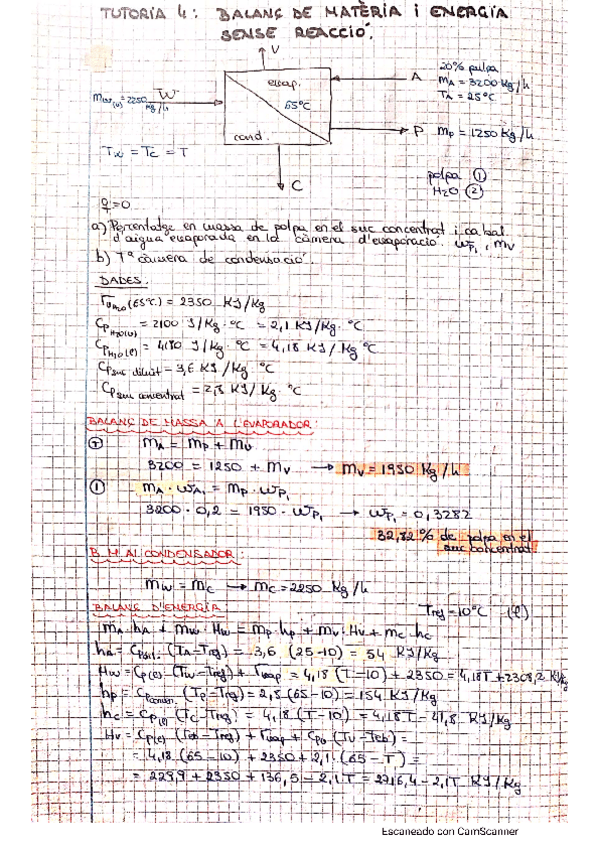 TUTORÍA 4: BALANÇ DE MATÈRIA I ENERGIA
SENSE REACCIÓ.
V
evap.
65ºC
cond.
A
20% pulpa
mA = 3200 kg/h
TA = 25ºC
mw(v) = 2250 kg/h
W
P
mp = 1250 kg/h
Tw = Tc = T
C
polpa ①
H2O ②
q = 0
a) Percentatge en massa de polpa en el suc concentrat i cabal
d'aigua evaporada en la càmera d'evaporació. wp1, mv
b) Tª càmera de condensació.
DADES.
rH2O (65ºC) = 2350 KJ/Kg
CpH2O(v) = 2100 J/Kg·ºC = 2,1 KJ/Kg·ºC
CpH2O(l) = 4180 J/Kg·ºC = 4,18 KJ/Kg·ºC
Cp suc diluït = 3,6 KJ/Kg ºC
Cp suc concentrat = 2,8 KJ/Kg ºC
BALANÇ DE MASSA A L'EVAPORADOR
Ⓣ mA = mp + mv
3200 = 1250 + mv → mv = 1950 Kg/h
① mA · wA1 = mp · wp1
3200 · 0,2 = 1950 · wp1 → wp1 = 0,3282
32,82% de polpa en el
suc concentrat
B.M AL CONDENSADOR
mw = mc → mc = 2250 Kg/h
BALANÇ D'ENERGIA
Tref = 10ºC (l)
mA·hA + mw·Hw = mp·hp + mv·Hv + mc·hc
hA = Cpdil. (TA - Tref) = 3,6 (25-10) = 54 KJ/Kg
Hw = Cp(l) · (Tw - Tref) + rvap = 4,18 (T-10) + 2350 = 4,18T + 2308,2 KJ/Kg
hp = Cpconcen. (Tp - Tref) = 2,8 (65-10) = 154 KJ/Kg
hc = Cp(l) (Tc - Tref) = 4,18 (T-10) = 4,18T - 41,8 KJ/Kg
Hv = Cp(l) (Teb - Tref) + rvap + Cpv (Tv - Teb) =
= 4,18 (65-10) + 2350 + 2,1 · (65 - T) =
= 229,9 + 2350 + 136,5 - 2,1T = 2716,4 - 2,1T KJ/Kg
Escaneado con CamScanner